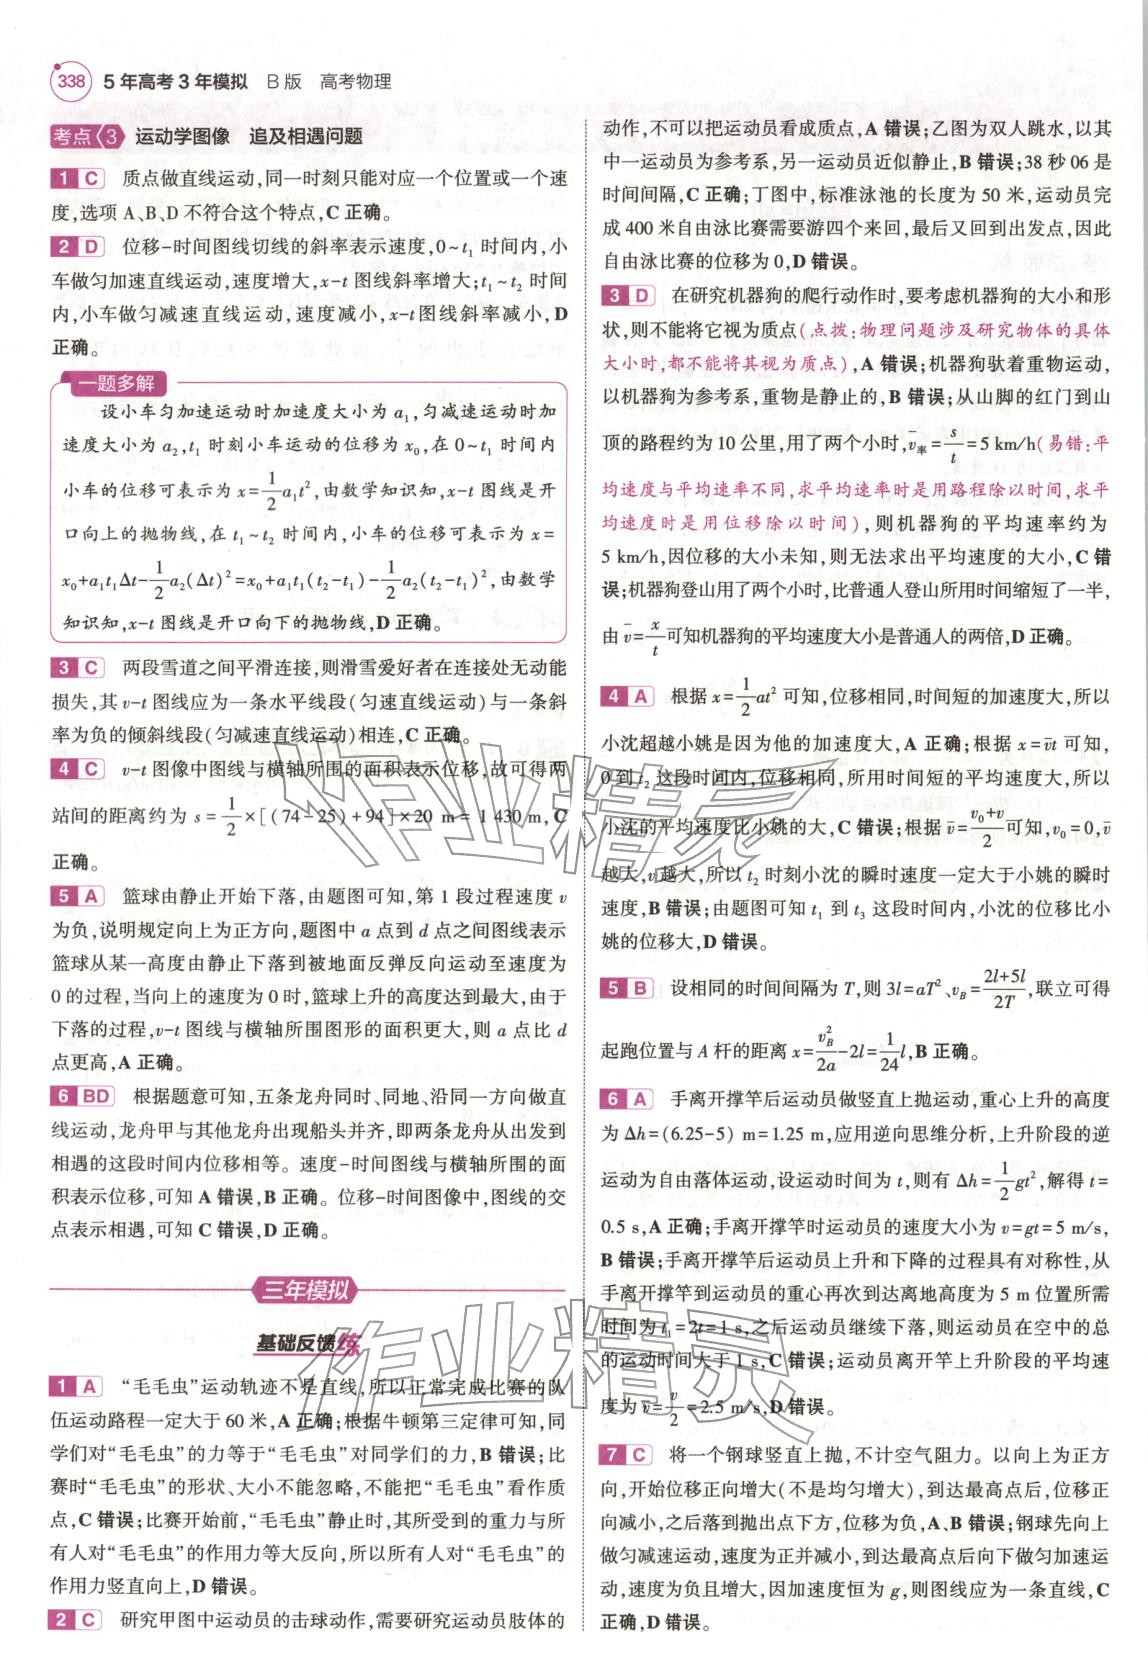 338 5年高考3年模拟 B版 高考物理
考点3 运动学图像 追及相遇问题
1 C 质点做直线运动,同一时刻只能对应一个位置或一个速
度,选项A、B、D不符合这个特点,C正确。
2 D 位移-时间图线切线的斜率表示速度,0~t₁时间内,小
车做匀加速直线运动,速度增大,x-t图线斜率增大;t₁~t₂时间
内,小车做匀减速直线运动,速度减小,x-t图线斜率减小,D
正确。
一题多解
设小车匀加速运动时加速度大小为a₁,匀减速运动时加
速度大小为a₂,t₁时刻小车运动的位移为x₀,在0~t₁时间内
小车的位移可表示为x=\frac{1}{2}a₁t²,由数学知识知,x-t图线是开
口向上的抛物线,在t₁~t₂时间内,小车的位移可表示为x=
x₀+a₁t₁Δt-\frac{1}{2}a₂(Δt)²=x₀+a₁t₁(t₂-t₁)-\frac{1}{2}a₂(t₂-t₁)²,由数学
知识知,x-t图线是开口向下的抛物线,D正确。
3 C 两段雪道之间平滑连接,则滑雪爱好者在连接处无动能
损失,其v-t图线应为一条水平线段(匀速直线运动)与一条斜
率为负的倾斜线段(匀减速直线运动)相连,C正确。
4 C v-t图像中图线与横轴所围的面积表示位移,故可得两
站间的距离约为s=\frac{1}{2}×[(74-25)+94]×20 m=1 430 m,C
正确。
5 A 篮球由静止开始下落,由题图可知,第1段过程速度v
为负,说明规定向上为正方向,题图中a点到d点之间图线表示
篮球从某一高度由静止下落到被地面反弹反向运动至速度为
0的过程,当向上的速度为0时,篮球上升的高度达到最大,由于
下落的过程,v-t图线与横轴所围图形的面积更大,则a点比d
点更高,A正确。
6 BD 根据题意可知,五条龙舟同时、同地、沿同一方向做直
线运动,龙舟甲与其他龙舟出现船头并齐,即两条龙舟从出发到
相遇的这段时间内位移相等。速度-时间图线与横轴所围的面
积表示位移,可知A错误,B正确。位移-时间图像中,图线的交
点表示相遇,可知C错误,D正确。
三年模拟
基础反馈练
1 A “毛毛虫”运动轨迹不是直线,所以正常完成比赛的队
伍运动路程一定大于60米,A正确;根据牛顿第三定律可知,同
学们对“毛毛虫”的力等于“毛毛虫”对同学们的力,B错误;比
赛时“毛毛虫”的形状、大小不能忽略,不能把“毛毛虫”看作质
点,C错误;比赛开始前,“毛毛虫”静止时,其所受到的重力与所
有人对“毛毛虫”的作用力等大反向,所以所有人对“毛毛虫”的
作用力竖直向上,D错误。
2 C 研究甲图中运动员的击球动作,需要研究运动员肢体的
动作,不可以把运动员看成质点,A错误;乙图为双人跳水,以其
中一运动员为参考系,另一运动员近似静止,B错误;38秒06是
时间间隔,C正确;丁图中,标准泳池的长度为50米,运动员完
成400米自由泳比赛需要游四个来回,最后又回到出发点,因此
自由泳比赛的位移为0,D错误。
3 D 在研究机器狗的爬行动作时,要考虑机器狗的大小和形
状,则不能将它视为质点(点拨:物理问题涉及研究物体的具体
大小时,都不能将其视为质点),A错误;机器狗驮着重物运动,
以机器狗为参考系,重物是静止的,B错误;从山脚的红门到山
顶的路程约为10公里,用了两个小时,\bar{v}率=\frac{s}{t}=5 km/h(易错:平
均速度与平均速率不同,求平均速率时是用路程除以时间,求平
均速度时是用位移除以时间),则机器狗的平均速率约为
5 km/h,因位移的大小未知,则无法求出平均速度的大小,C错
误;机器狗登山用了两个小时,比普通人登山所用时间缩短了一半,
由\bar{v}=\frac{x}{t}可知机器狗的平均速度大小是普通人的两倍,D正确。
4 A 根据x=\frac{1}{2}at²可知,位移相同,时间短的加速度大,所以
小沈超越小姚是因为他的加速度大,A正确;根据x=\bar{v}t可知,
0到t₂这段时间内,位移相同,所用时间短的平均速度大,所以
小沈的平均速度比小姚的大,C错误;根据\bar{v}=\frac{v₀+v}{2}可知,v₀=0,\bar{v}
越大,v越大,所以t₂时刻小沈的瞬时速度一定大于小姚的瞬时
速度,B错误;由题图可知t₁到t₃这段时间内,小沈的位移比小
姚的位移大,D错误。
5 B 设相同的时间间隔为T,则3l=aT²、v_B=\frac{2l+5l}{2T},联立可得
起跑位置与A杆的距离x=\frac{v_B²}{2a}-2l=\frac{1}{24}l,B正确。
6 A 手离开撑竿后运动员做竖直上抛运动,重心上升的高度
为Δh=(6.25-5) m=1.25 m,应用逆向思维分析,上升阶段的逆
运动为自由落体运动,设运动时间为t,则有Δh=\frac{1}{2}gt²,解得t=
0.5 s,A正确;手离开撑竿时运动员的速度大小为v=gt=5 m/s,
B错误;手离开撑竿后运动员上升和下降的过程具有对称性,从
手离开撑竿到运动员的重心再次到达离地高度为5 m位置所需
时间为t₁=2t=1 s,之后运动员继续下落,运动员在空中的总
的运动时间大于1 s,C错误;运动员离开竿上升阶段的平均速
度为\bar{v}=\frac{v}{2}=2.5 m/s,D错误。
7 C 将一个钢球竖直上抛,不计空气阻力。以向上为正方
向,开始位移正向增大(不是均匀增大),到达最高点后,位移正
向减小,之后落到抛出点下方,位移为负,A、B错误;钢球先向上
做匀减速运动,速度为正并减小,到达最高点后向下做匀加速运
动,速度为负且增大,因加速度恒为g,则图线应为一条直线,C
正确,D错误。
作业精灵
作业精灵